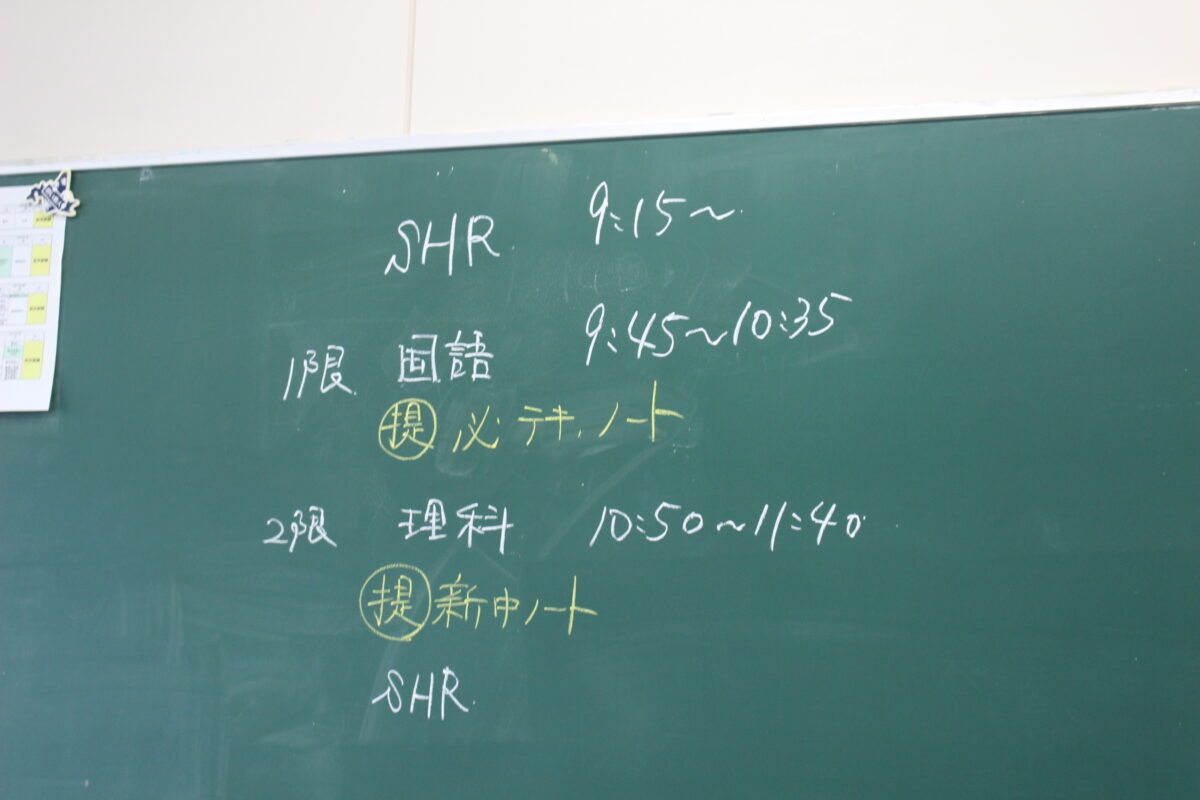 SHR 9:15～
1限 国語 9:45～10:35
提 必テキ、ノート
2限 理科 10:50～11:40
提 新中ノート
SHR